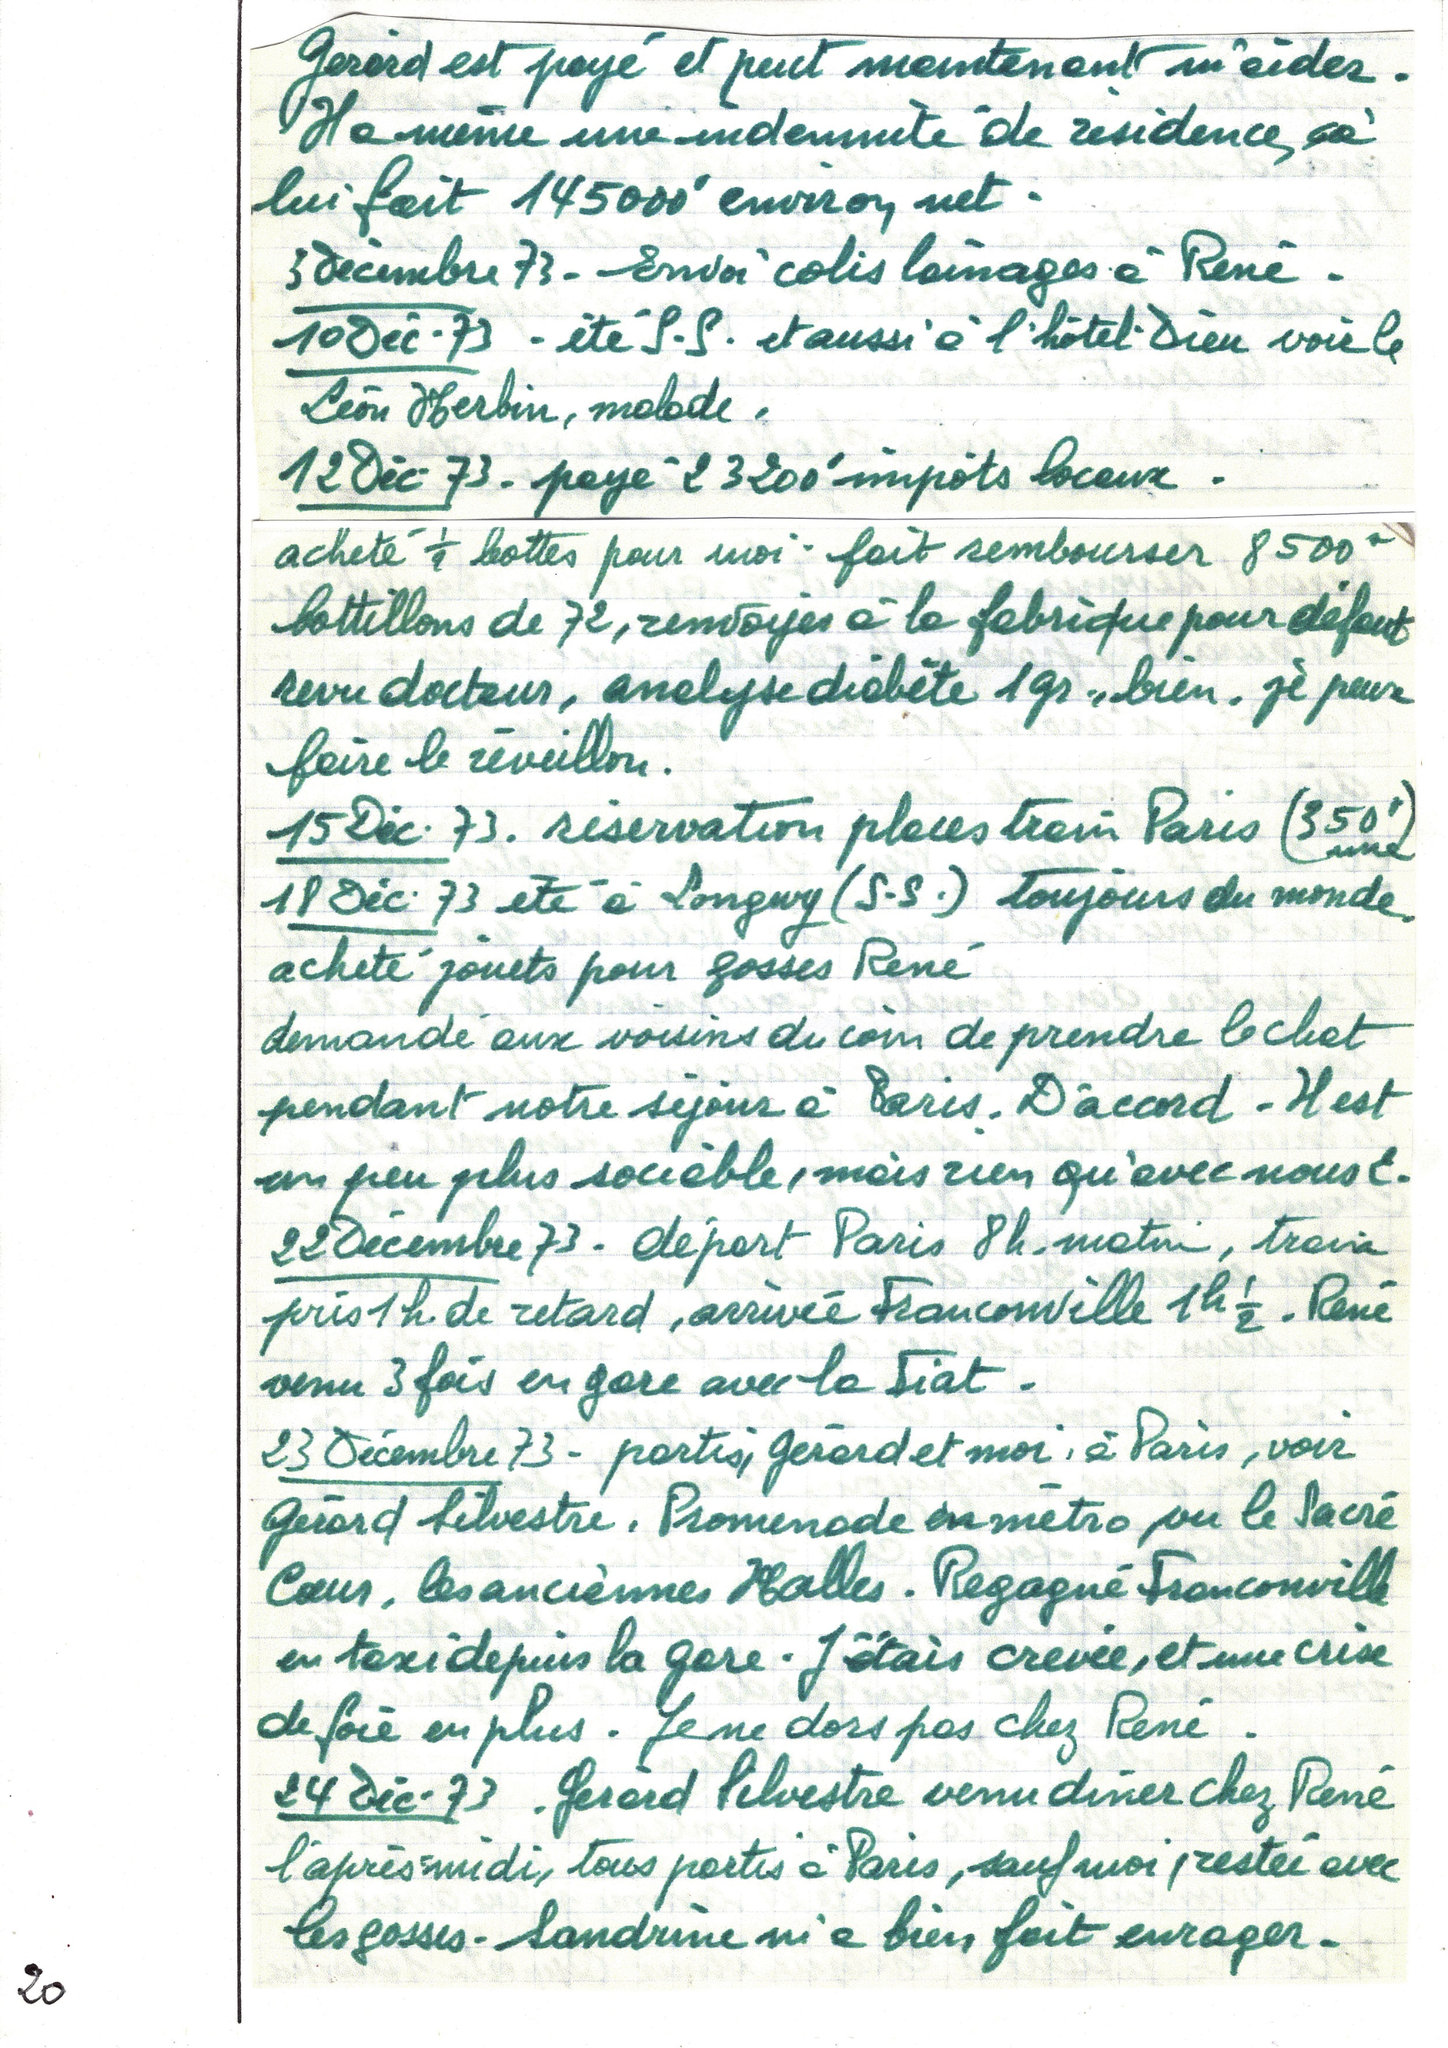 Gérard est payé et peut maintenant m'aider.
Il a même une indemnité de résidence, çà
lui fait 145000' environ, net.
3 Décembre 73 - Envoi colis lainages à René.
10 Déc. 73 - été S.S. et aussi à l'hôtel-Dieu voir le
Léon Herbin, malade.
12 Déc. 73 - payé 23200' impôts locaux.
acheté ½ bottes pour moi - fait rembourser 8500'
bottillons de 72, renvoyés à la fabrique pour défaut
revu docteur, analyse diabète 1 gr., bien. je peux
faire le réveillon.
15 Déc. 73. réservation places train Paris (350'
une)
18 Déc. 73 été à Longwy (S.S.) toujours du monde.
acheté jouets pour gosses René
demandé aux voisins du coin de prendre le chat
pendant notre séjour à Paris. D'accord - Il est
un peu plus sociable, mais rien qu'avec nous 2.
22 Décembre 73 - départ Paris 8h. matin, train
pris 1h. de retard, arrivée Franconville 1h ½. René
venu 3 fois en gare avec la Fiat.
23 Décembre 73 - partis, Gérard et moi, à Paris, voir
Gérard Silvestre. Promenade en métro, vu le Sacré
Cœur, les anciennes Halles. Regagné Franconville
en taxi depuis la gare. J'étais crevée, et une crise
de foie en plus. Je ne dors pas chez René.
24 Déc. 73. Gérard Silvestre venu dîner chez René
l'après-midi, tous partis à Paris, sauf moi, restée avec
les gosses. Sandrine m'a bien fait enrager.
20